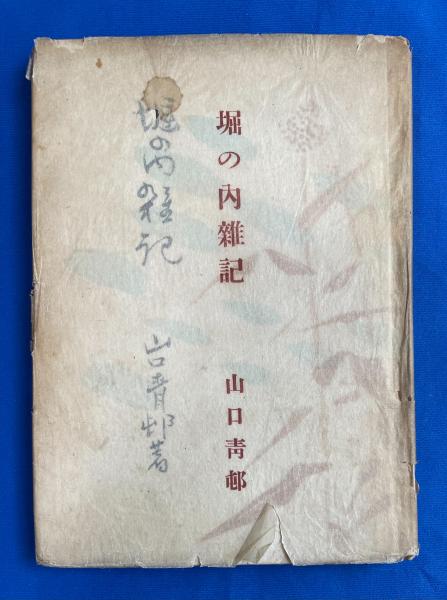 堀の内雜記
山口青邨
堀の内雑記
山口青邨著